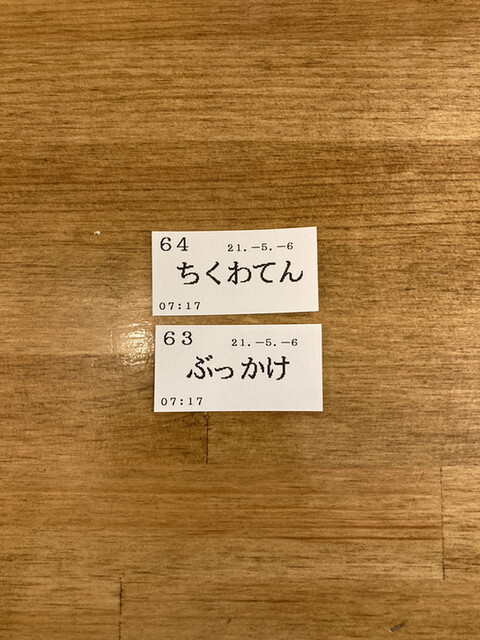 64 21.-5.-6
ちくわてん
07:17
63 21.-5.-6
ぶっかけ
07:17